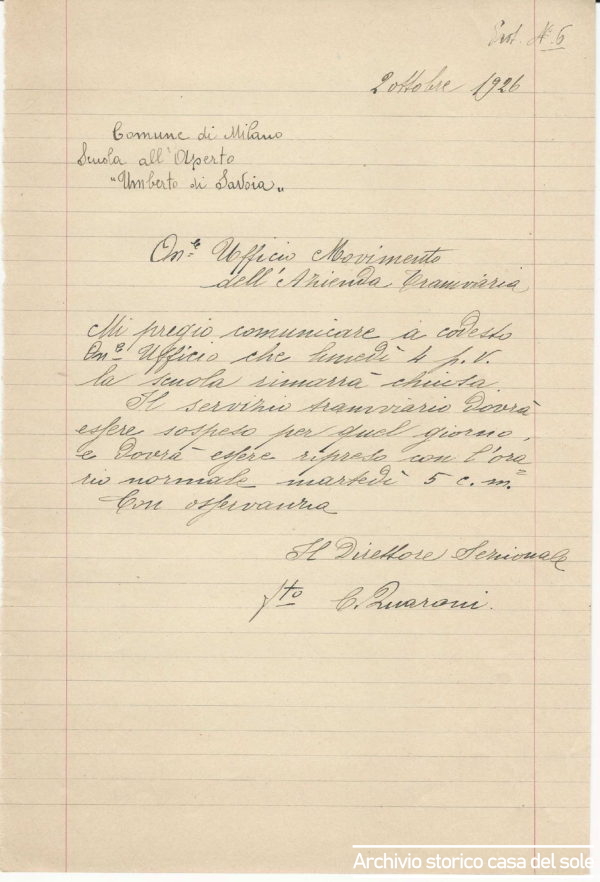 Prot. N.º 6
2 ottobre 1926
Comune di Milano
Scuola all'Aperto
"Umberto di Savoia"
On.le Ufficio Movimento
dell'Azienda Tramviaria
Mi pregio comunicare a codesto
On.le Ufficio che lunedì 4 p.v.
la scuola rimarrà chiusa.
Il servizio tramviario dovrà
essere sospeso per quel giorno,
e dovrà essere ripreso con l'ora
rio normale martedì 5 c.m.
Con osservanza
Il Direttore Sezionale
fto C. Quaroni.
Archivio storico casa del sole